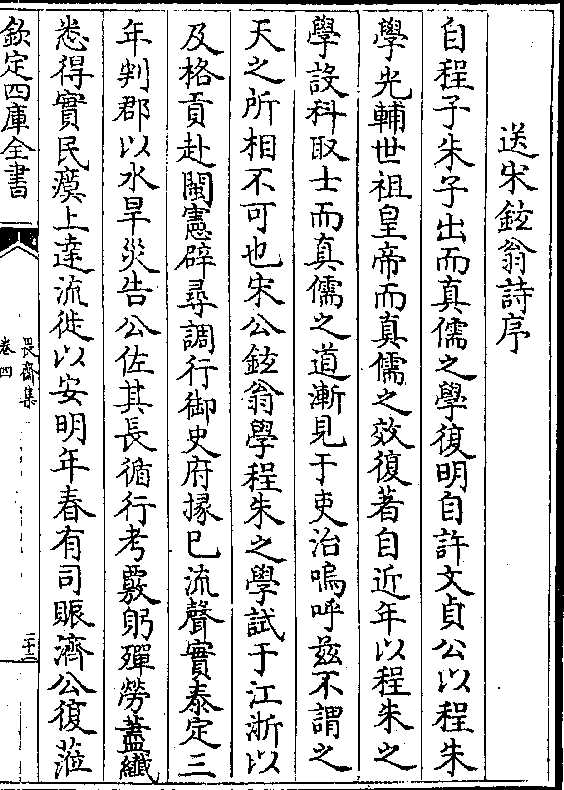 送宋鉉翁詩序
自程子朱子出而真儒之學復明自許文貞公以程朱
學光輔世祖皇帝而真儒之效復著自近年以程朱之
學設科取士而真儒之道漸見于吏治嗚呼兹不謂之
天之所相不可也宋公鉉翁學程朱之學試于江浙以
及格貢赴閩憲辟尋調行御史府掾已流聲實泰定三
年判郡以水旱災告公佐其長循行考覈躬殫勞蓋纎
悉得實民瘼上達流徙以安明年春有司賑濟公復涖
欽定四庫全書
畏齋集
卷四
二十三